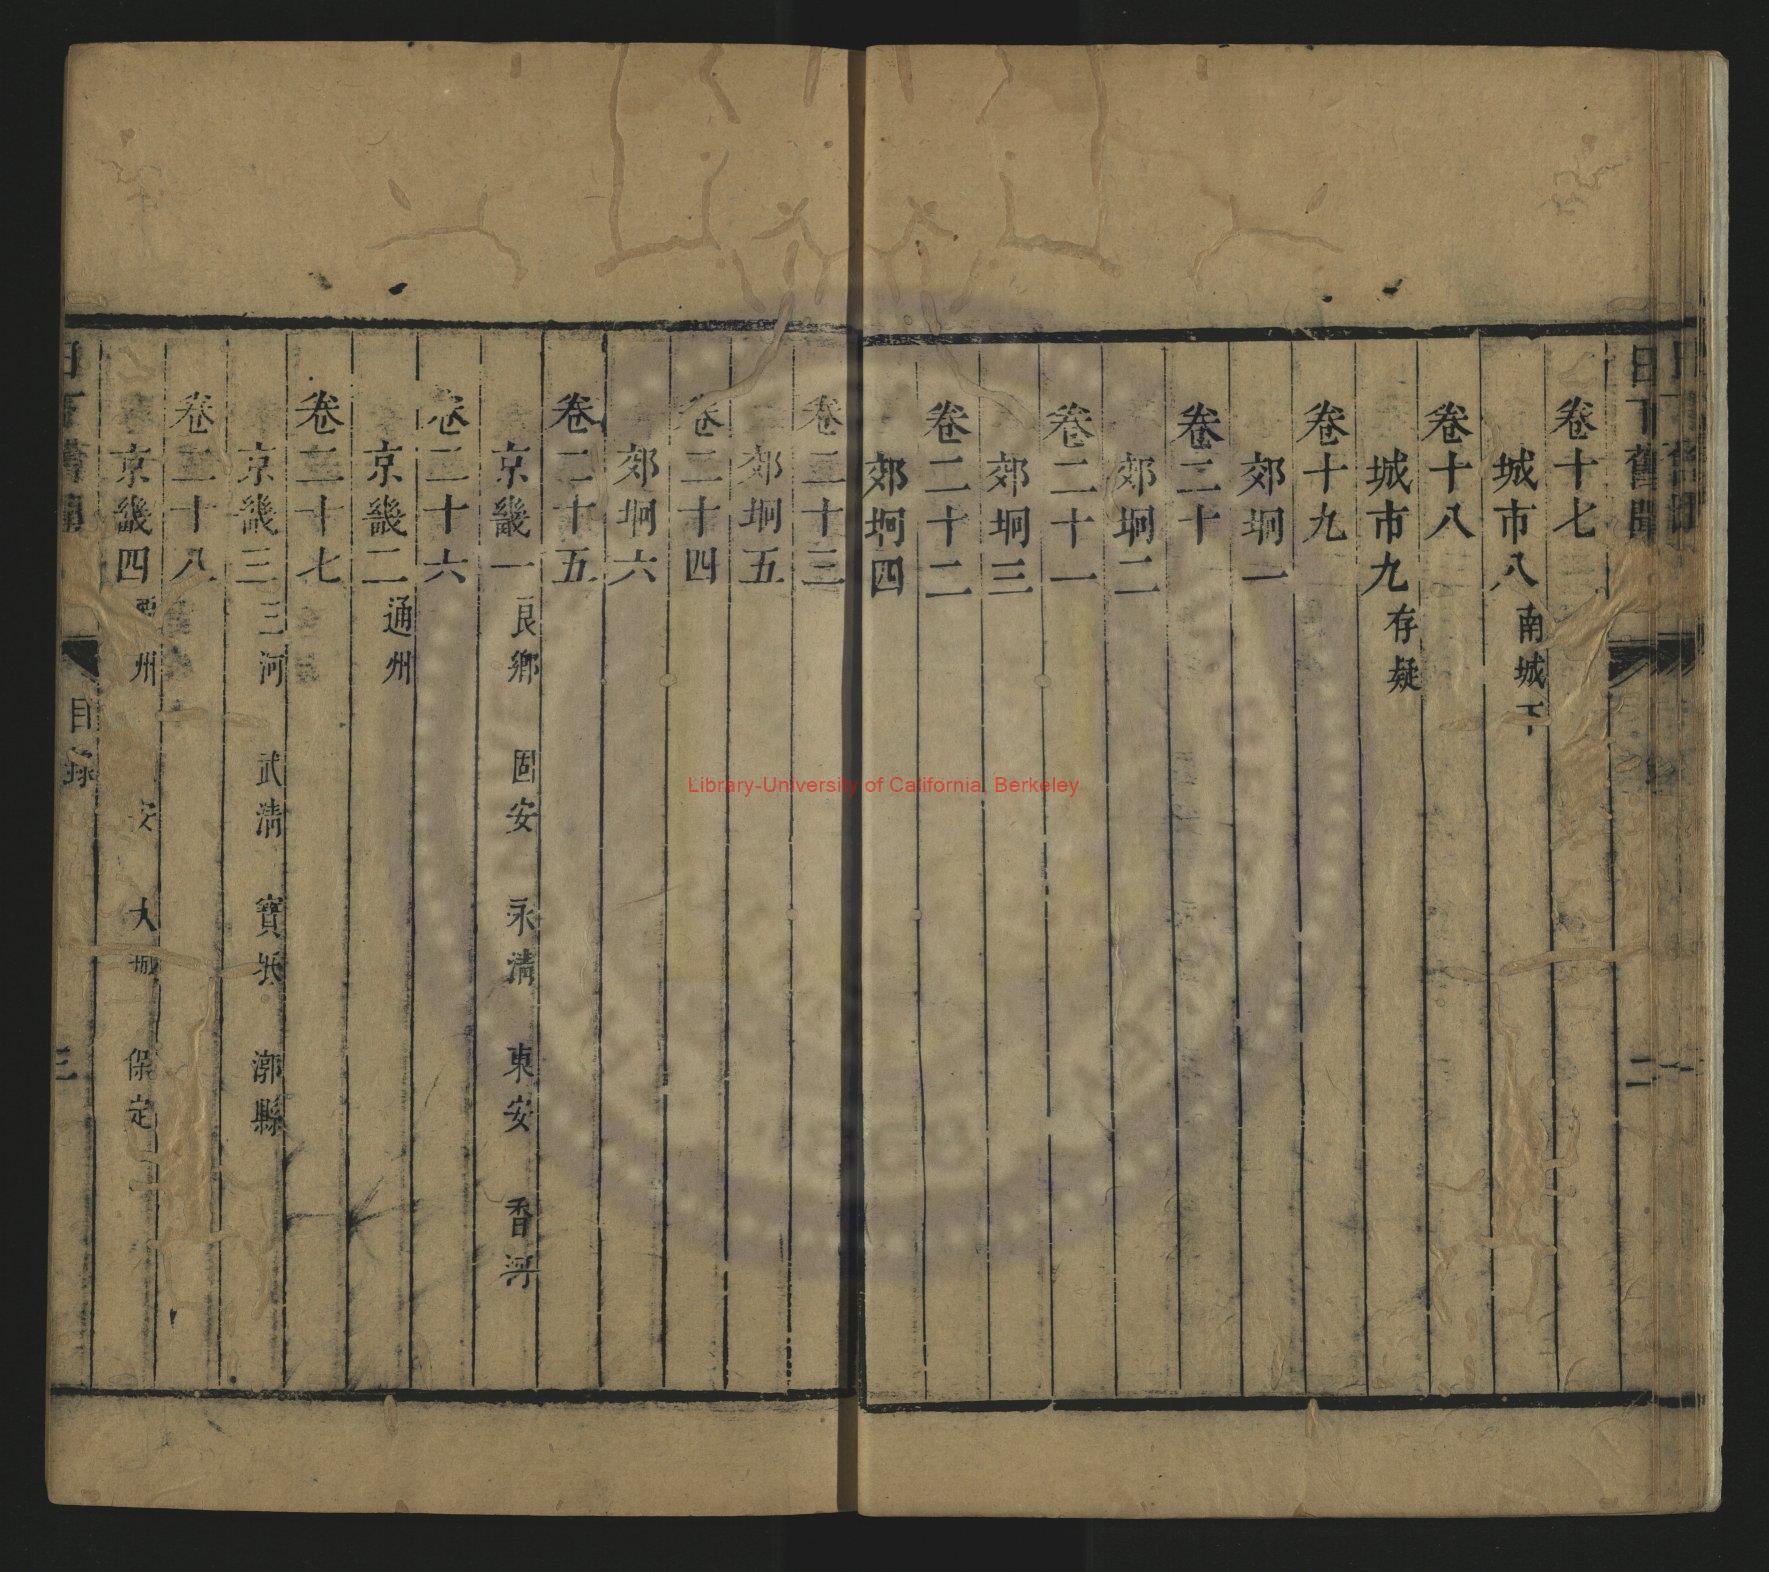 日下舊聞
二
卷十七
城市八 南城下
卷十八
城市九 存疑
卷十九
郊坰一
卷二十
郊坰二
卷二十一
郊坰三
卷二十二
郊坰四
卷二十三
郊坰五
卷二十四
郊坰六
卷二十五
京畿一 良鄉 固安 永清 東安 香河
卷二十六
京畿二 通州
卷二十七
京畿三 三河 武清 寶坻 漷縣
卷二十八
京畿四 州 安 大城 保定
日下舊聞 目錄 三
Library-University of California, Berkeley